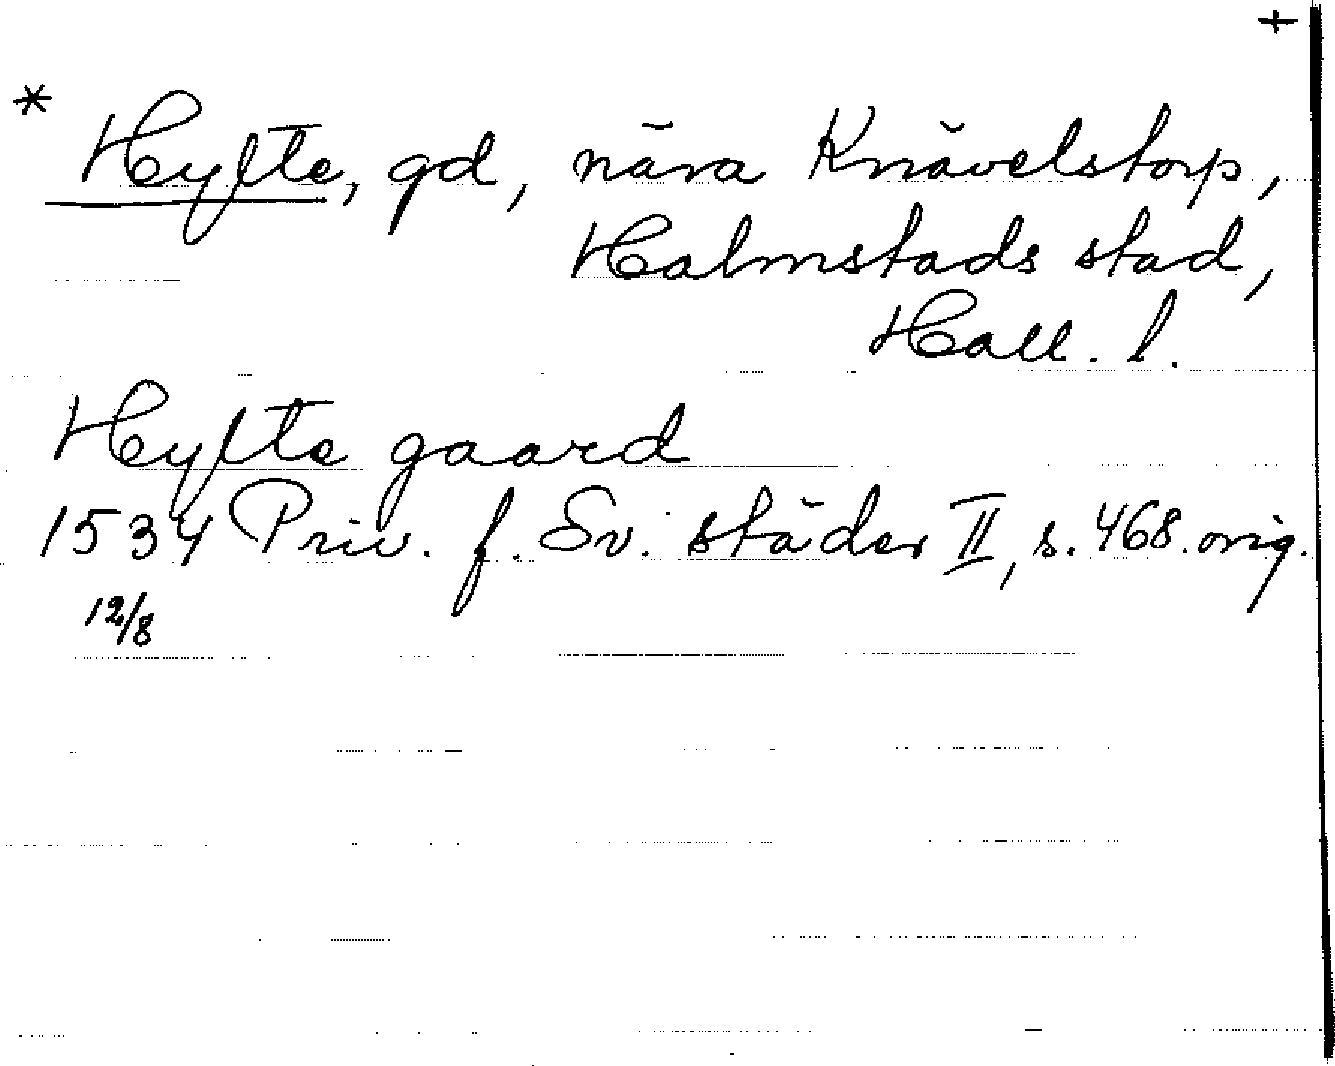 +
* Hylte, gd, nära Knävelstorp,
Halmstads stad,
Hall. l.
Hylte gaard
1534 Priv. f. Sv. städer II, s. 468. orig.
12/8